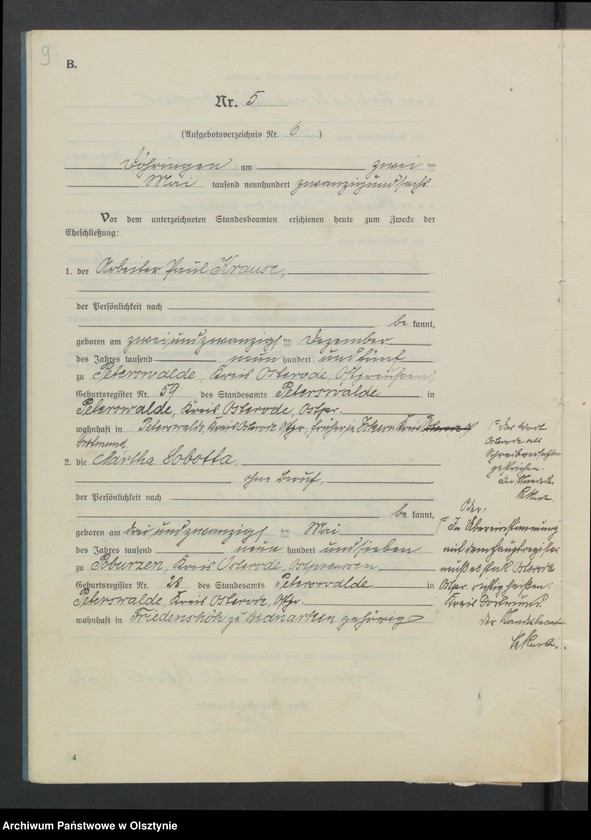 9
B.
Nr. 5
(Aufgebotsverzeichnis Nr. 6)
Döhringen am zwei ten
Mai tausend neunhundert zwanzigundsechs
Vor dem unterzeichneten Standesbeamten erschienen heute zum Zwecke der
Eheschließung:
1. der Arbeiter Paul Krause,
der Persönlichkeit nach
be kannt,
geboren am zweiundzwanzigsten Dezember
des Jahres tausend neun hundert und fünf
zu Peterswalde, Kreis Osterode, Ostpreußen,
Geburtsregister Nr. 59 des Standesamts Peterswalde in
Peterswalde, Kreis Osterode, Ostpr.
wohnhaft in Peterswalde, Kreis Osterode Ostpr., früher in Kreis
Dortmund
2. die Martha Sobotta,
ohne Beruf,
der Persönlichkeit nach
be kannt,
geboren am dreiundzwanzigsten Mai
des Jahres tausend neun hundert und sieben
zu Poburzen, Kreis Osterode, Ostpreussen.
Geburtsregister Nr. 28 des Standesamts Peterswalde in
Peterswalde, Kreis Osterode, Ostpr.
wohnhaft in Friedenshöh zu Bednarken gehörig
das Wort
Osterode als
Schreibversehen
gestrichen.
In Übereinstimmung
mit dem Hauptregister
muß es statt Osterode
Ostpr. richtig heißen:
Kreis Dortmund.
Der Standesbeamte
4
Archiwum Państwowe w Olsztynie